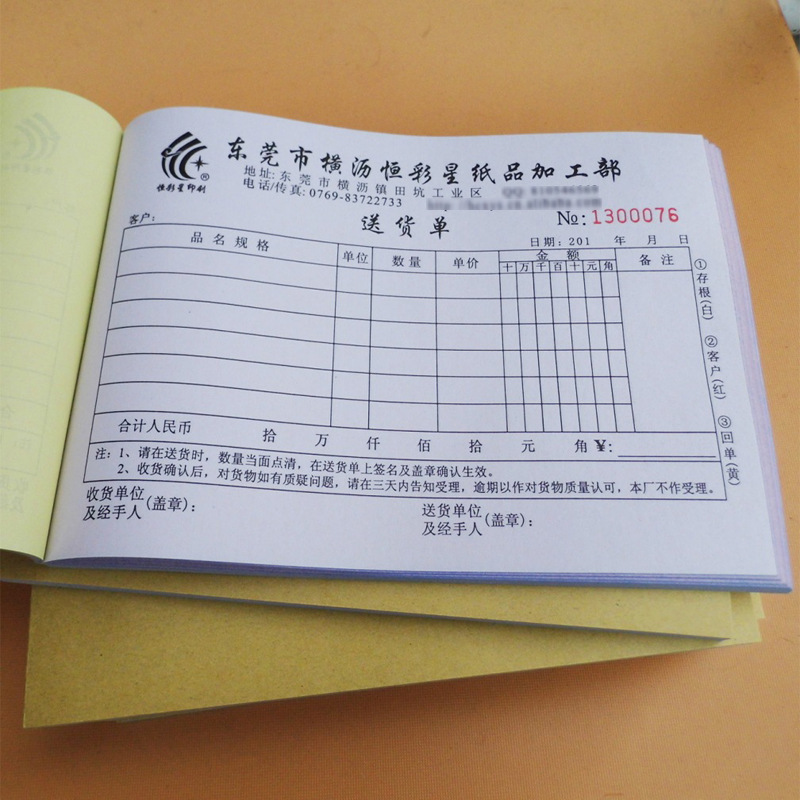 东莞市横沥恒彩星纸品加工部
恒彩星印刷®
地址:东莞市横沥镇田坑工业区
电话/传真:0769-83722733
送货单
№:1300076
客户:
日期:201 年 月 日
品名规格 单位 数量 单价 金额 备注
十 万 千 百 十 元 角
合计人民币 拾 万 仟 佰 拾 元 角 ¥:
注:1、请在送货时,数量当面点清,在送货单上签名及盖章确认生效。
2、收货确认后,对货物如有质疑问题,请在三天内告知受理,逾期以作对货物质量认可,本厂不作受理。
收货单位
及经手人(盖章):
送货单位
及经手人(盖章):
①存根(白) ②客户(红) ③回单(黄)